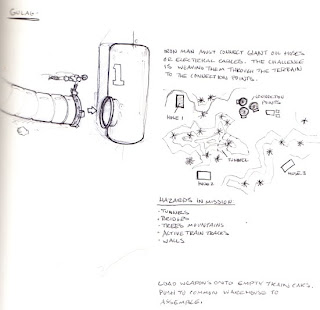 GULAG:
IRON MAN MUST CONNECT GIANT OIL HOSES
OR ELECTRICAL CABLES. THE CHALLENGE
IS WEAVING THEM THROUGH THE TERRAIN
TO THE CONNECTION POINTS.
1
CONNECTION
POINTS
HOSE 1
TUNNEL
HOSE 2
HOSE 3
HAZARDS IN MISSION
- TUNNELS
- BRIDGES
- TREES/MOUNTAINS
- ACTIVE TRAIN TRACKS
- WALLS
LOAD WEAPONS ONTO EMPTY TRAIN CARS.
PUSH TO COMMON WAREHOUSE TO
ASSEMBLE.